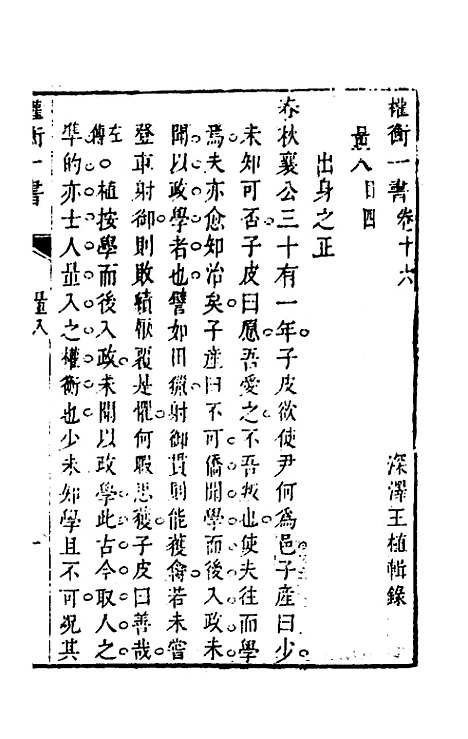 權衡一書卷十六　深澤王植輯錄
量入目四
出身之正
春秋襄公三十有一年子皮欲使尹何爲邑子産曰少
未知可否子皮曰愿吾愛之不吾叛也使夫往而學
焉夫亦愈知治矣子産曰不可僑聞學而後入政未
聞以政學者也譬如田獵射御貫則能獲禽若未嘗
登車射御則敗績厭覆是懼何暇思獲子皮曰善哉
左傳○植按學而後入政未聞以政學此古今取人之
準的亦士人量入之權衡也少未知學且不可况其
權衡一書　量入　一